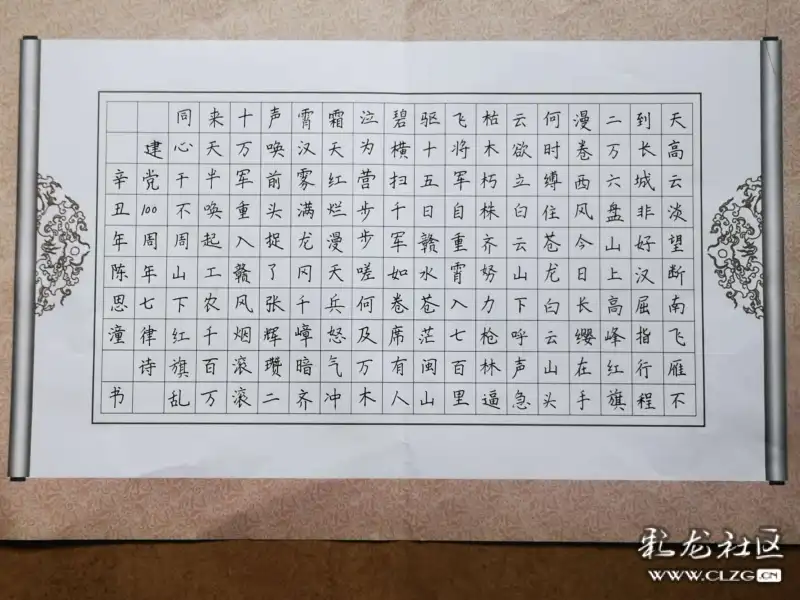 天高云淡望断南飞雁不
到长城非好汉屈指行程
二万六盘山上高峰红旗
漫卷西风今日长缨在手
何时缚住苍龙白云山头
云欲立白云山下呼声急
枯木朽株齐努力枪林逼
飞将军自重霄入七百里
驱十五日赣水苍茫闽山
碧横扫千军如卷席有人
泣为营步步嗟何及万木
霜天红烂漫天兵怒气冲
霄汉雾满龙冈千嶂暗齐
声唤前头捉了张辉瓒二
十万军重入赣风烟滚滚
来天半唤起工农千百万
同心干不周山下红旗乱
建党100周年七律诗
辛丑年陈思潼书
彩龙社区
WWW.CLZG.CN